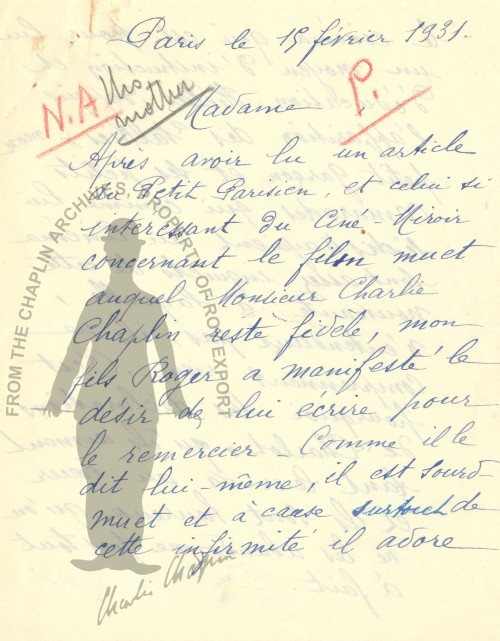 Paris le 15 février 1931.
N.A
his
mother
P.
Madame
Après avoir lu un article
du Petit Parisien, et celui si
interessant du Ciné-Miroir
concernant le film muet
auquel Monsieur Charlie
Chaplin reste fidèle, mon
fils Roger a manifesté le
désir de lui écrire pour
le remercier - Comme il le
dit lui-même, il est sourd-
muet et à cause surtout de
cette infirmité il adore
FROM THE CHAPLIN ARCHIVES, PROPERTY OF ROY EXPORT
Charlie Chaplin